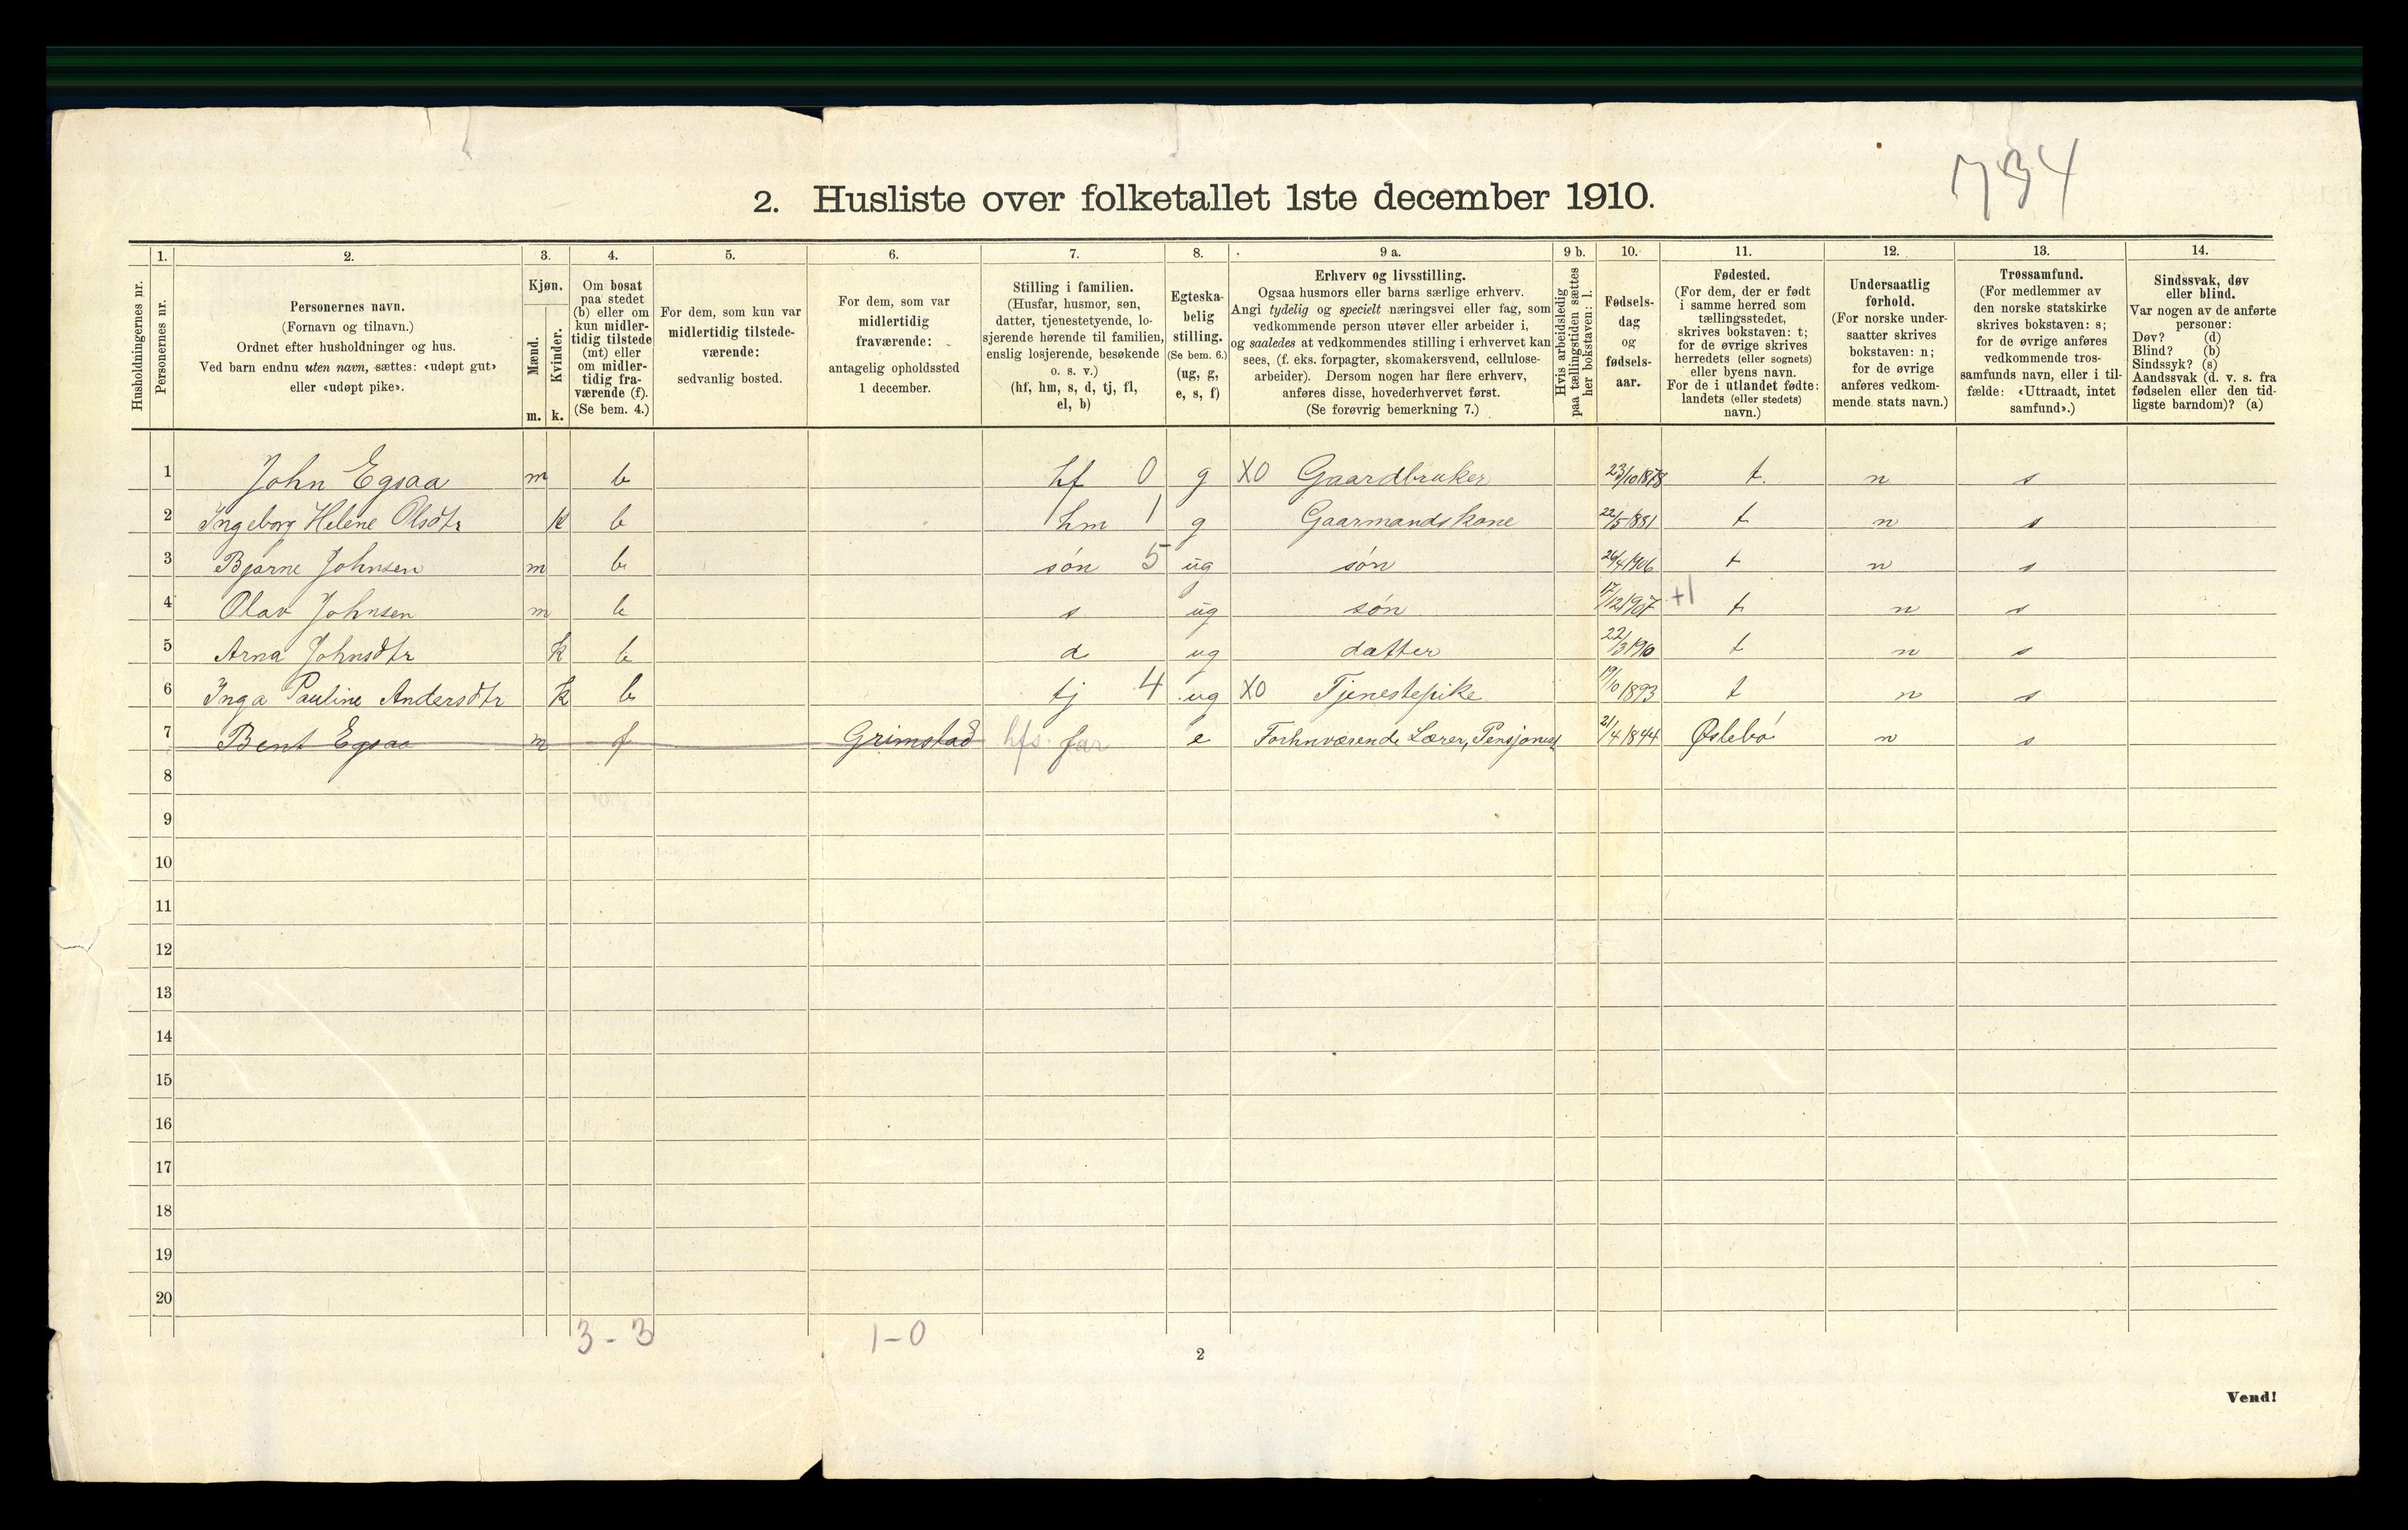 734
2. Husliste over folketallet 1ste december 1910.
Husholdningernes nr.
1.
Personernes nr.
2.
Personernes navn.
(Fornavn og tilnavn.)
Ordnet efter husholdninger og hus.
Ved barn endnu uten navn, sættes: «udøpt gut»
eller «udøpt pike».
3.
Kjøn.
Mænd.
Kvinder.
m. k.
4.
Om bosat
paa stedet
(b) eller om
kun midler-
tidig tilstede
(mt) eller
om midler-
tidig fra-
værende (f).
(Se bem. 4.)
5.
For dem, som kun var
midlertidig tilstede-
værende:
sedvanlig bosted.
6.
For dem, som var
midlertidig
fraværende:
antagelig opholdssted
1 december.
7.
Stilling i familien.
(Husfar, husmor, søn,
datter, tjenestetyende, lo-
sjerende hørende til familien,
enslig losjerende, besøkende
o. s. v.)
(hf, hm, s, d, tj, fl,
el, b)
8.
Egteska-
belig
stilling.
(Se bem. 6.)
(ug, g,
e, s, f)
9 a.
Erhverv og livsstilling.
Ogsaa husmors eller barns særlige erhverv.
Angi tydelig og specielt næringsvei eller fag, som
vedkommende person utøver eller arbeider i,
og saaledes at vedkommendes stilling i erhvervet kan
sees, (f. eks. forpagter, skomakersvend, cellulose-
arbeider). Dersom nogen har flere erhverv,
anføres disse, hovederhvervet først.
(Se forøvrig bemerkning 7.)
9 b.
Hvis arbeidsledig
paa tællingstiden sættes
her bokstaven: l.
10.
Fødsels-
dag
og
fødsels-
aar.
11.
Fødested.
(For dem, der er født
i samme herred som
tællingsstedet,
skrives bokstaven: t;
for de øvrige skrives
herredets (eller sognets)
eller byens navn.
For de i utlandet fødte:
landets (eller stedets)
navn.)
12.
Undersaatlig
forhold.
(For norske under-
saatter skrives
bokstaven: n;
for de øvrige
anføres vedkom-
mende stats navn.)
13.
Trossamfund.
(For medlemmer av
den norske statskirke
skrives bokstaven: s;
for de øvrige anføres
vedkommende tros-
samfunds navn, eller i til-
fælde: «Uttraadt, intet
samfund».)
14.
Sindssvak, døv
eller blind.
Var nogen av de anførte
personer:
Døv? (d)
Blind? (b)
Sindssyk? (s)
Aandssvak (d. v. s. fra
fødselen eller den tid-
ligste barndom)? (a)
1 John Egsaa m b hf 0 g X0 Gaardbruker 23/10 1878 t. n s
2 Ingeborg Helene Olsdtr k b hm 1 g Gaarmandskone 22/5 1881 t n s
3 Bjarne Johnsen m b søn 5 ug søn 26/4 1906 t n s
4 Olav Johnsen m b s ug søn 17/12 1907 +1 t n s
5 Arna Johnsdtr k b d ug datter 22/3 1910 t n s
6 Inga Pauline Andersdtr k b tj 4 ug X0 Tjenestepike 19/10 1893 t n s
7 Bent Egsaa m f Grimstad hfs far e Forhnværende Lærer, Pensjonist 21/4 1844 Øslebø n s
8
9
10
11
12
13
14
15
16
17
18
19
20
3 - 3 1 - 0
2
Vend!